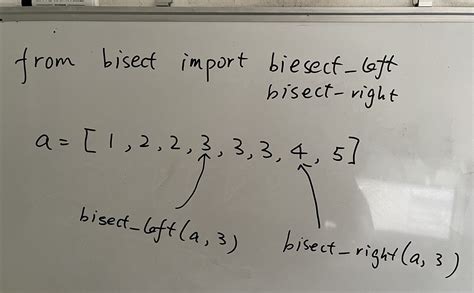 from bisect import biesect_left
bisect-right
a = [1, 2, 2, 3, 3, 3, 4, 5]
bisect_left(a, 3)
bisect_right(a, 3)